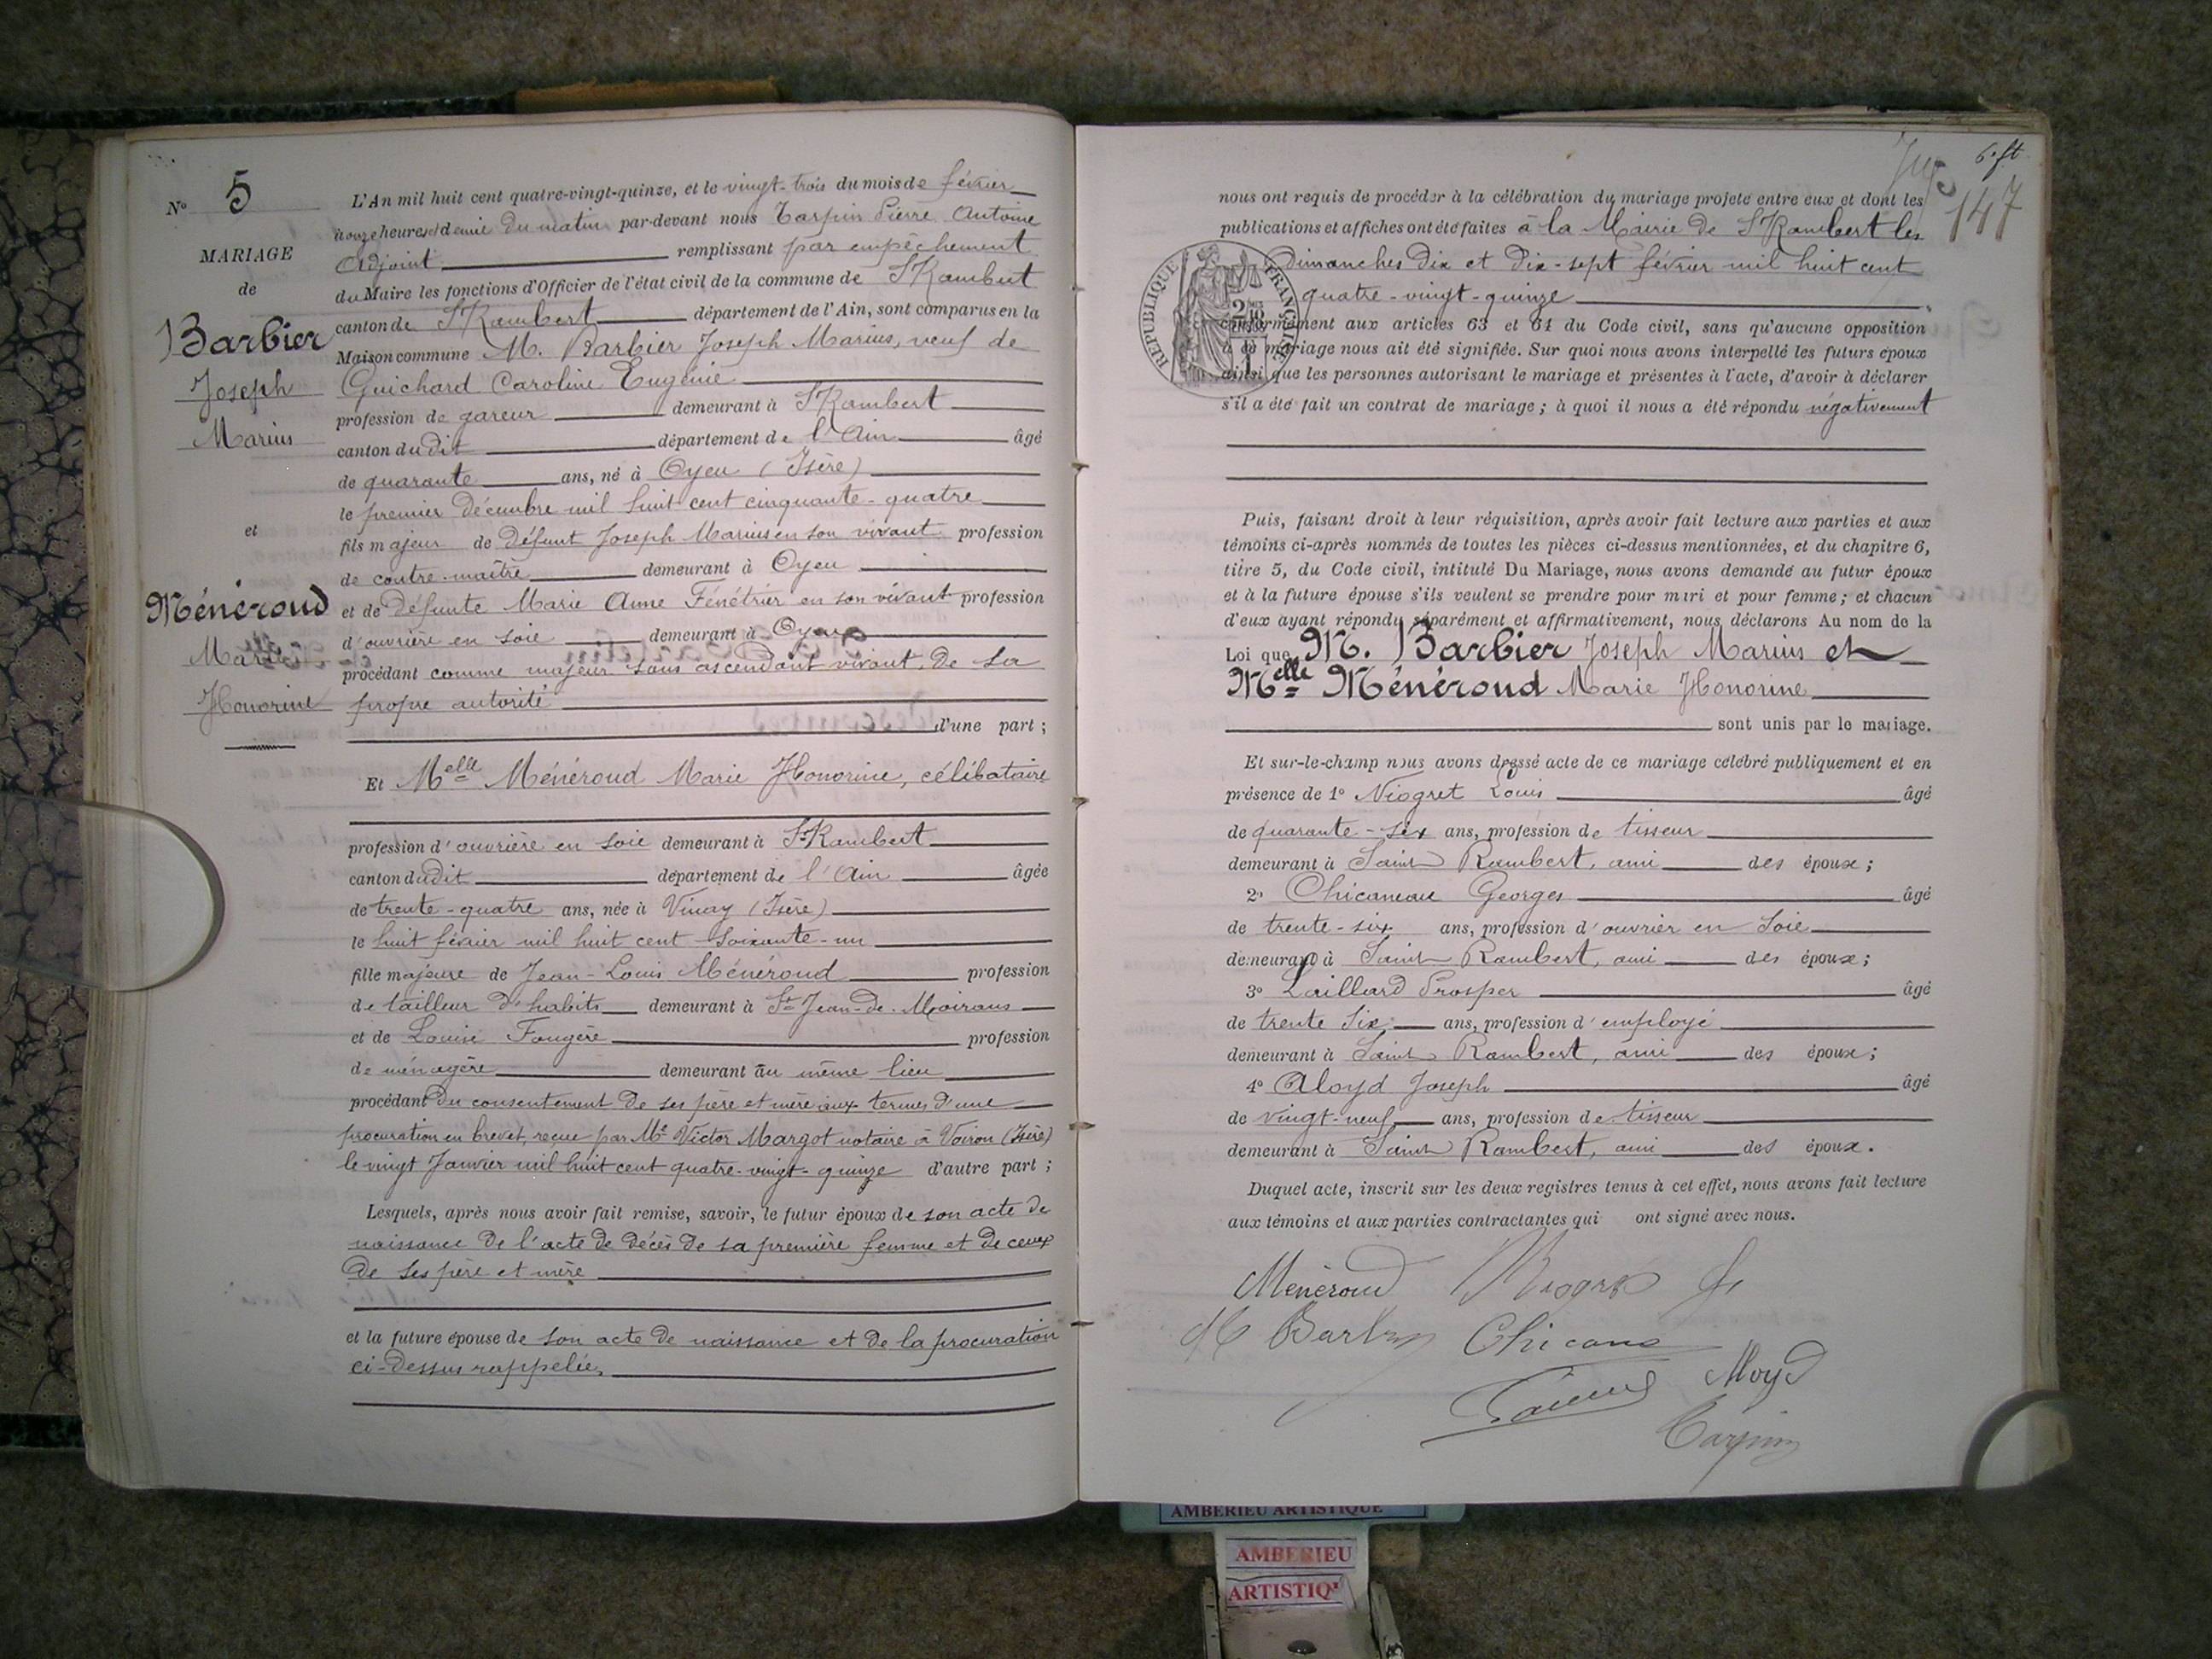 N° 5
MARIAGE
de
Barbier
Joseph
Marius
et
Ménéroud
Marie
Honorine
L'An mil huit cent quatre-vingt-quinze, et le vingt-trois du mois de février
à onze heures et demie du matin par-devant nous Tarpin Pierre Antoine
Adjoint remplissant par empêchement
du Maire les fonctions d'Officier de l'état civil de la commune de St Rambert
canton de St Rambert département de l'Ain, sont comparus en la
Maison commune M. Barbier Joseph Marius, veuf de
Guichard Caroline Eugénie
profession de gareur demeurant à St Rambert
canton dudit département de l'Ain âgé
de quarante ans, né à Oyeu (Isère)
le premier décembre mil huit cent cinquante-quatre
fils majeur de défunt Joseph Marius en son vivant profession
de contre-maître demeurant à Oyeu
et de défunte Marie Anne Fénétrier en son vivant profession
d'ouvrière en soie demeurant à Oyeu
procédant comme majeur sans ascendant vivant, de sa
propre autorité
d'une part ;
Et Melle Ménéroud Marie Honorine, célibataire
profession d'ouvrière en soie demeurant à St Rambert
canton dudit département de l'Ain âgée
de trente-quatre ans, née à Vinay (Isère)
le huit février mil huit cent soixante-un
fille majeure de Jean-Louis Ménéroud profession
de tailleur d'habits demeurant à St Jean-de-Moirans
et de Louise Fougère profession
de ménagère demeurant au même lieu
procédant du consentement de ses père et mère aux termes d'une
procuration en brevet, reçue par Me Victor Margot notaire à Voiron (Isère)
le vingt Janvier mil huit cent quatre-vingt-quinze d'autre part ;
Lesquels, après nous avoir fait remise, savoir, le futur époux de son acte de
naissance de l'acte de décès de sa première femme et de ceux
de ses père et mère
et la future épouse de son acte de naissance et de la procuration
ci-dessus rappelée,
6e ft
147
nous ont requis de procéder à la célébration du mariage projeté entre eux et dont les
publications et affiches ont été faites à la Mairie de St Rambert les
Dimanches dix et dix-sept février mil huit cent
quatre-vingt-quinze
REPUBLIQUE FRANÇAISE
conformément aux articles 63 et 64 du Code civil, sans qu'aucune opposition
à ce mariage nous ait été signifiée. Sur quoi nous avons interpellé les futurs époux
ainsi que les personnes autorisant le mariage et présentes à l'acte, d'avoir à déclarer
s'il a été fait un contrat de mariage ; à quoi il nous a été répondu négativement
Puis, faisant droit à leur réquisition, après avoir fait lecture aux parties et aux
témoins ci-après nommés de toutes les pièces ci-dessus mentionnées, et du chapitre 6,
titre 5, du Code civil, intitulé Du Mariage, nous avons demandé au futur époux
et à la future épouse s'ils veulent se prendre pour mari et pour femme ; et chacun
d'eux ayant répondu séparément et affirmativement, nous déclarons Au nom de la
Loi que M. Barbier Joseph Marius et
Melle Ménéroud Marie Honorine
sont unis par le mariage.
Et sur-le-champ nous avons dressé acte de ce mariage célébré publiquement et en
présence de 1° Niogret Louis âgé
de quarante-six ans, profession de tisseur
demeurant à Saint Rambert, ami des époux ;
2° Chicaneau Georges âgé
de trente-six ans, profession d'ouvrier en soie
demeurant à Saint Rambert, ami des époux ;
3° Laillard Prosper âgé
de trente six ans, profession d'employé
demeurant à Saint Rambert, ami des époux ;
4° Aloyd Joseph âgé
de vingt-neuf ans, profession de tisseur
demeurant à Saint Rambert, ami des époux.
Duquel acte, inscrit sur les deux registres tenus à cet effet, nous avons fait lecture
aux témoins et aux parties contractantes qui ont signé avec nous.
Ménéroud Niogret
M Barbier Chicano
Aloyd
Tarpin
AMBERIEU ARTISTIQUE
AMBERIEU
ARTISTIQ